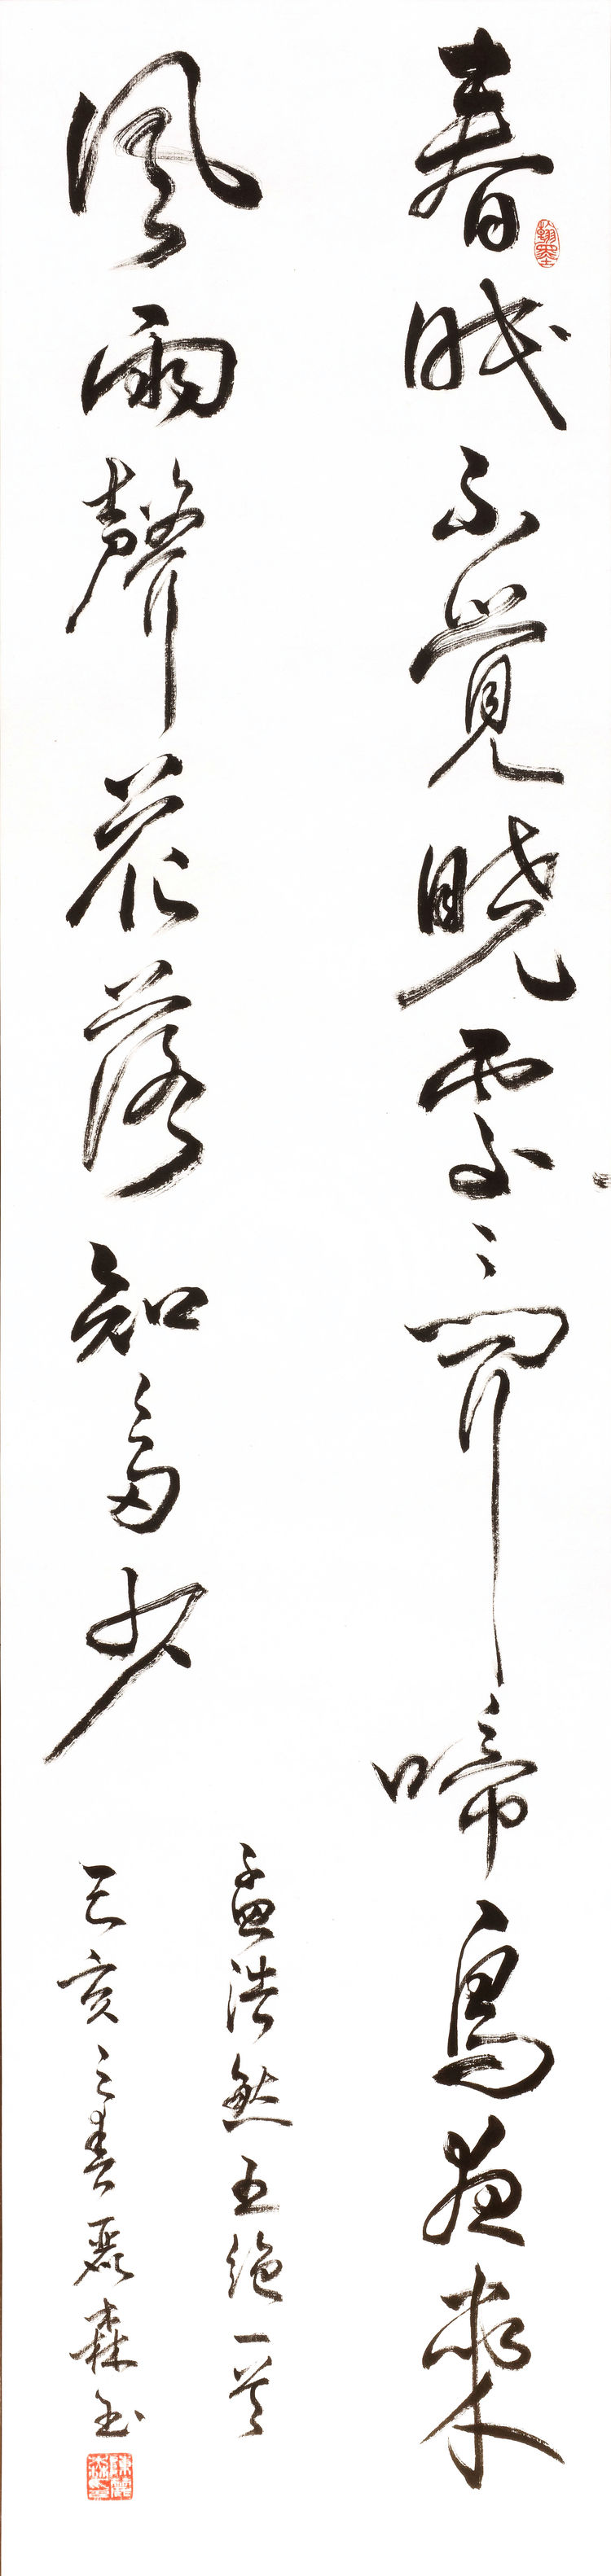 春眠不覺曉處〻聞啼鳥夜來
風雨聲花落知多少
孟浩然五絕一首
己亥之春麗森
翰墨